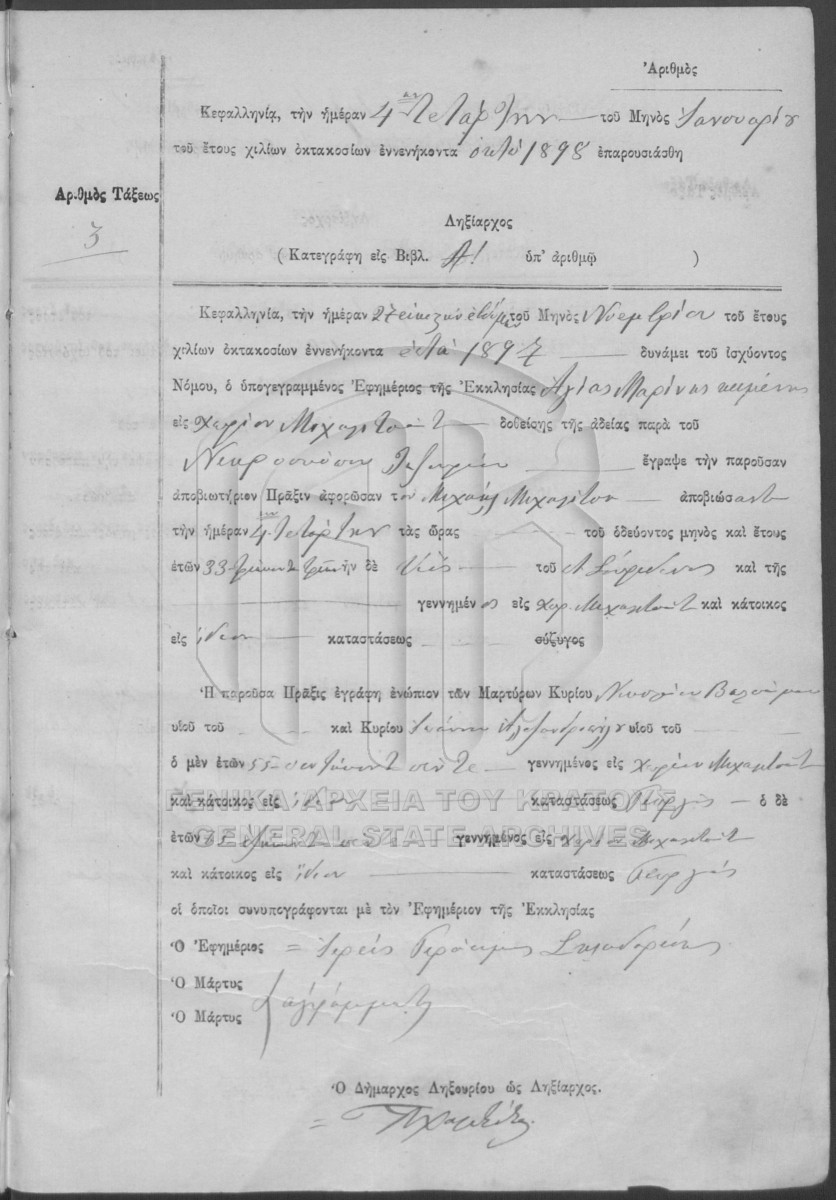 Ἀριθμὸς
Κεφαλληνίᾳ, τὴν ἡμέραν 4 Τετάρτην τοῦ Μηνὸς Ἰανουαρίου
τοῦ ἔτους χιλίων ὀκτακοσίων ἐννενήκοντα ὀκτὼ 1898 ἐπαρουσιάσθη
Αριθμὸς Τάξεως
3
Ληξίαρχος
(Κατεγράφη εἰς Βιβλ. Α! ὑπ' ἀριθμῷ )
Κεφαλληνίᾳ, τὴν ἡμέραν 27 τοῦ Μηνὸς Νοεμβρίου τοῦ ἔτους
χιλίων ὀκτακοσίων ἐννενήκοντα ἑπτὰ 1897 δυνάμει τοῦ ἰσχύοντος
Νόμου, ὁ ὑπογεγραμμένος Ἐφημέριος τῆς Ἐκκλησίας Ἁγίας Μαρίνης κειμένης
εἰς χωρίον δοθείσης τῆς ἀδείας παρὰ τοῦ
ἔγραψε τὴν παροῦσαν
ἀποβιωτήριον Πρᾶξιν ἀφορῶσαν τον Μιχαήλ ἀποβιώσαντα
τὴν ἡμέραν Τετάρτην τὰς ὥρας τοῦ ὁδεύοντος μηνὸς καὶ ἔτους
ἐτῶν 33 ἦν δὲ υἱὸς τοῦ καὶ τῆς
γεννημένος εἰς χωρ. καὶ κάτοικος
εἰς ἴδιον καταστάσεως σύζυγος
Ἡ παροῦσα Πρᾶξις ἐγράφη ἐνώπιον τῶν Μαρτύρων Κυρίου
υἱοῦ τοῦ καὶ Κυρίου Ἰωάννου υἱοῦ τοῦ
ὁ μὲν ἐτῶν 55 πεντήκοντα πέντε γεννημένος εἰς χωρίον
καὶ κάτοικος εἰς ἴδιον καταστάσεως Γεωργὸς ὁ δὲ
ΓΕΝΙΚΑ ΑΡΧΕΙΑ ΤΟΥ ΚΡΑΤΟΥΣ
GENERAL STATE ARCHIVES
ἐτῶν γεννημένος εἰς χωρίον
καὶ κάτοικος εἰς ἴδιον καταστάσεως Γεωργὸς
οἱ ὁποῖοι συνυπογράφονται μὲ τὸν Ἐφημέριον τῆς Ἐκκλησίας
Ὁ Ἐφημέριος = Ἱερεὺς Γεράσιμος
Ὁ Μάρτυς
Ὁ Μάρτυς ἀγράμματοι
Ὁ Δήμαρχος Ληξουρίου ὡς Ληξίαρχος.